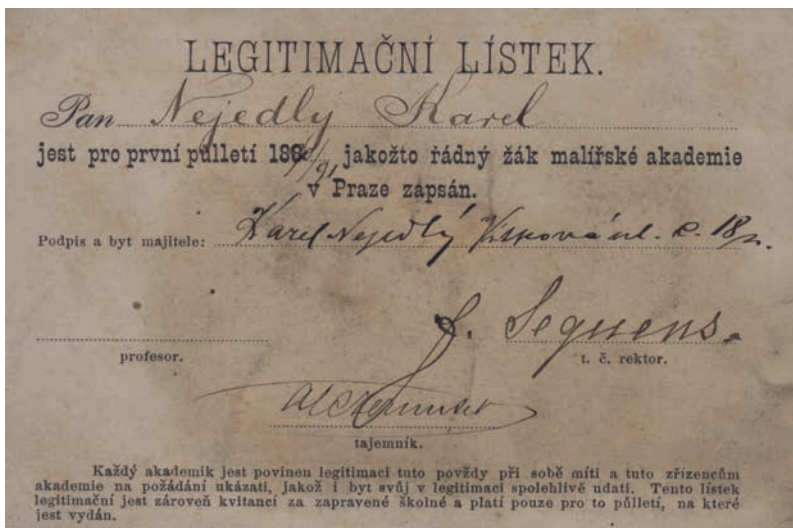 LEGITIMAČNÍ LÍSTEK.
Pan Nejedlý Karel
jest pro první půlletí 1890/91 jakožto řádný žák malířské akademie
v Praze zapsán.
Podpis a byt majitele: Karel Nejedlý ul. č. 18
F. Sequens.
profesor. t. č. rektor.
tajemník.
Každý akademik jest povinen legitimaci tuto povždy při sobě míti a tuto zřízencům
akademie na požádání ukázati, jakož i byt svůj v legitimaci spolehlivě udati. Tento lístek
legitimační jest zároveň kvitancí za zapravené školné a platí pouze pro to půlletí, na které
jest vydán.